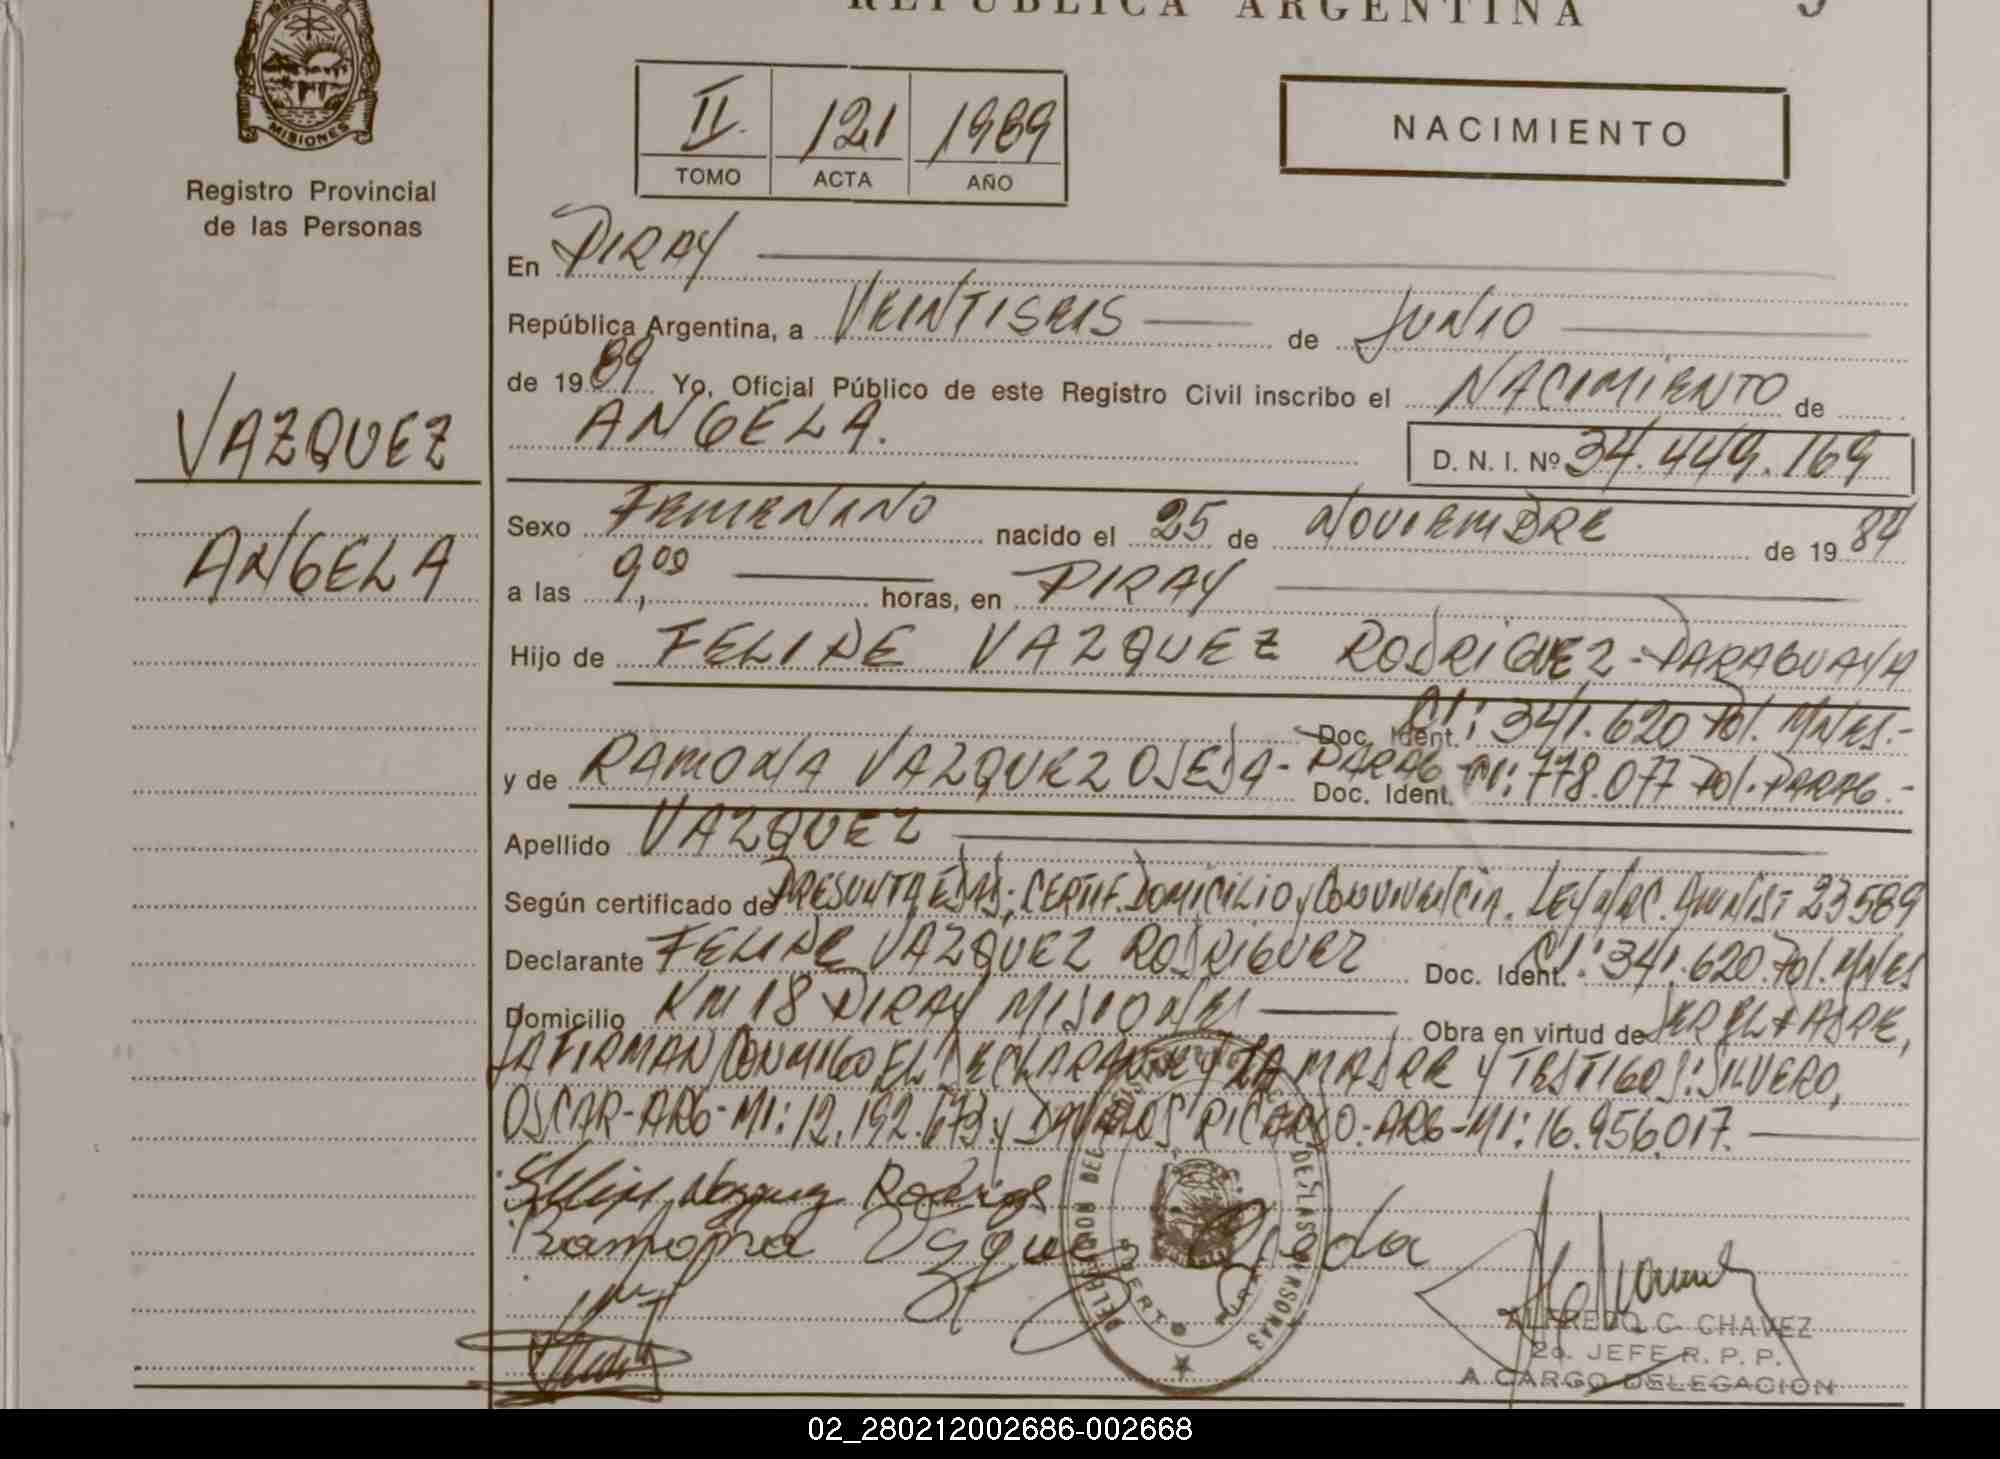 REPUBLICA ARGENTINA
MISIONES
Registro Provincial
de las Personas
II 121 1989
TOMO ACTA AÑO
NACIMIENTO
VAZQUEZ
ANGELA
En PIRAY
República Argentina, a VEINTISEIS de JUNIO
de 1989 Yo, Oficial Público de este Registro Civil inscribo el NACIMIENTO de
ANGELA.
D. N. I. Nº 34.449.169
Sexo FEMENINO nacido el 25 de NOVIEMBRE de 1984
a las 9,00 horas, en PIRAY
Hijo de FELIPE VAZQUEZ RODRIGUEZ - PARAGUAYA
Doc. Ident. CI: 341.620 Pol. MNES.-
y de RAMONA VAZQUEZ OJEDA - PARAG Doc. Ident. CI: 778.077 Pol. PARAG.-
Apellido VAZQUEZ
Según certificado de PRESUNTA EDAD; CERTIF. DOMICILIO y CONVIVENCIA. LEY NAC. AMNIST 23589
Declarante FELIPE VAZQUEZ RODRIGUEZ Doc. Ident. CI: 341.620. Pol. MNES
Domicilio KM 18 PIRAY MISIONES Obra en virtud de SER EL PADRE,
FIRMAN CONMIGO EL DECLARANTE y LA MADRE y TESTIGOS: SILVERO,
OSCAR-ARG-MI: 12.192.673 y RICARDO-ARG-MI: 16.956.017.
Felipe Vazquez Rodrigs
Ramona Vsquez Ojeda
DELEGACION DEL DE LAS PERSONAS
ALFREDO C. CHAVEZ
2o. JEFE R. P. P.
A CARGO DELEGACION
02_280212002686-002668